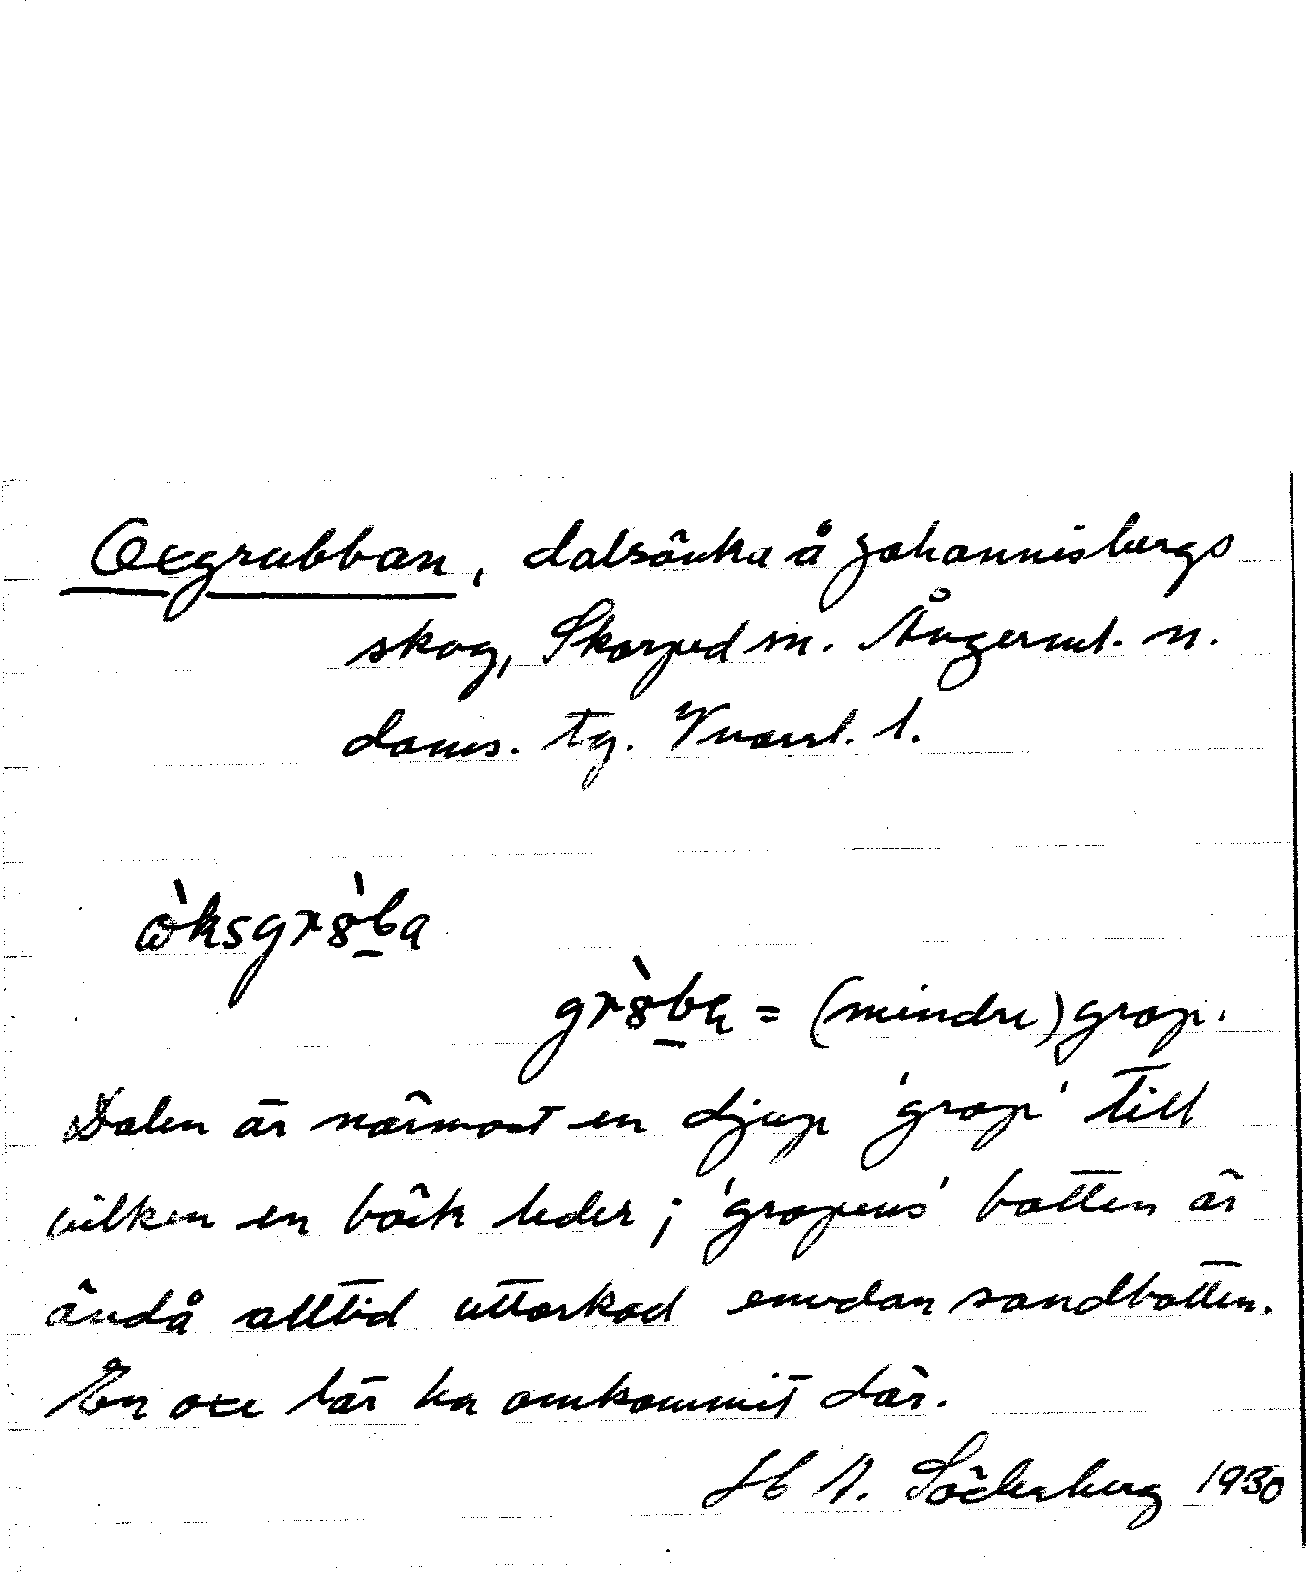 Oxgrubban, dalsänka å Johannisbergs
skog, Skorped sn. Ångerml. n.
doms. tg. Vnorrl. l.
ò̀ksgrȣ̀ba
grȣ̀ba = (mindre) grop.
Dalen är närmast en djup 'grop' till
vilken en bäck leder; 'gropens' botten är
ändå alltid uttorkad emedan sandbotten.
En oxe lär ha omkommit där.
H A. Söderberg 1930